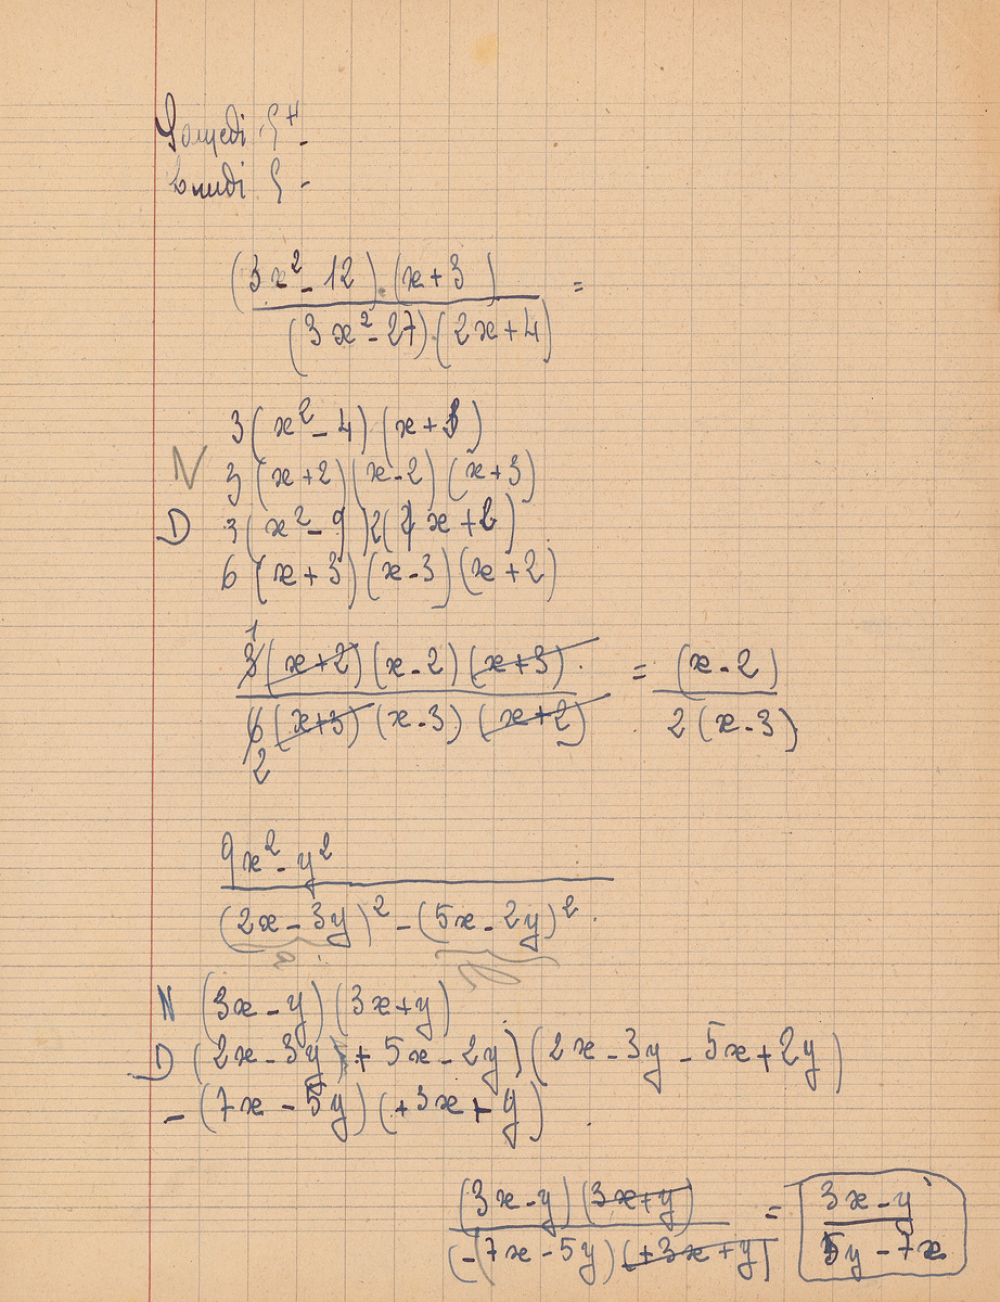 Samedi 5H -
Lundi 5 -
(3x² - 12) . (x + 3) =
(3x² - 27) . (2x + 4)
3 (x² - 4) (x + 3)
N 3 (x + 2) (x - 2) (x + 3)
D 3 (x² - 9) 2 (x + 2)
6 (x + 3) (x - 3) (x + 2)
1
3 (x + 2) (x - 2) (x + 3) . = (x - 2)
6 (x + 3) (x - 3) (x + 2) 2 (x - 3)
2
9x² - y²
(2x - 3y)² - (5x - 2y)² .
a
N (3x - y) (3x + y)
D (2x - 3y + 5x - 2y) (2x - 3y - 5x + 2y)
- (7x - 5y) (+3x + y)
(3x - y) (3x + y) = 3x - y
-(7x - 5y) (+3x + y) 5y - 7x